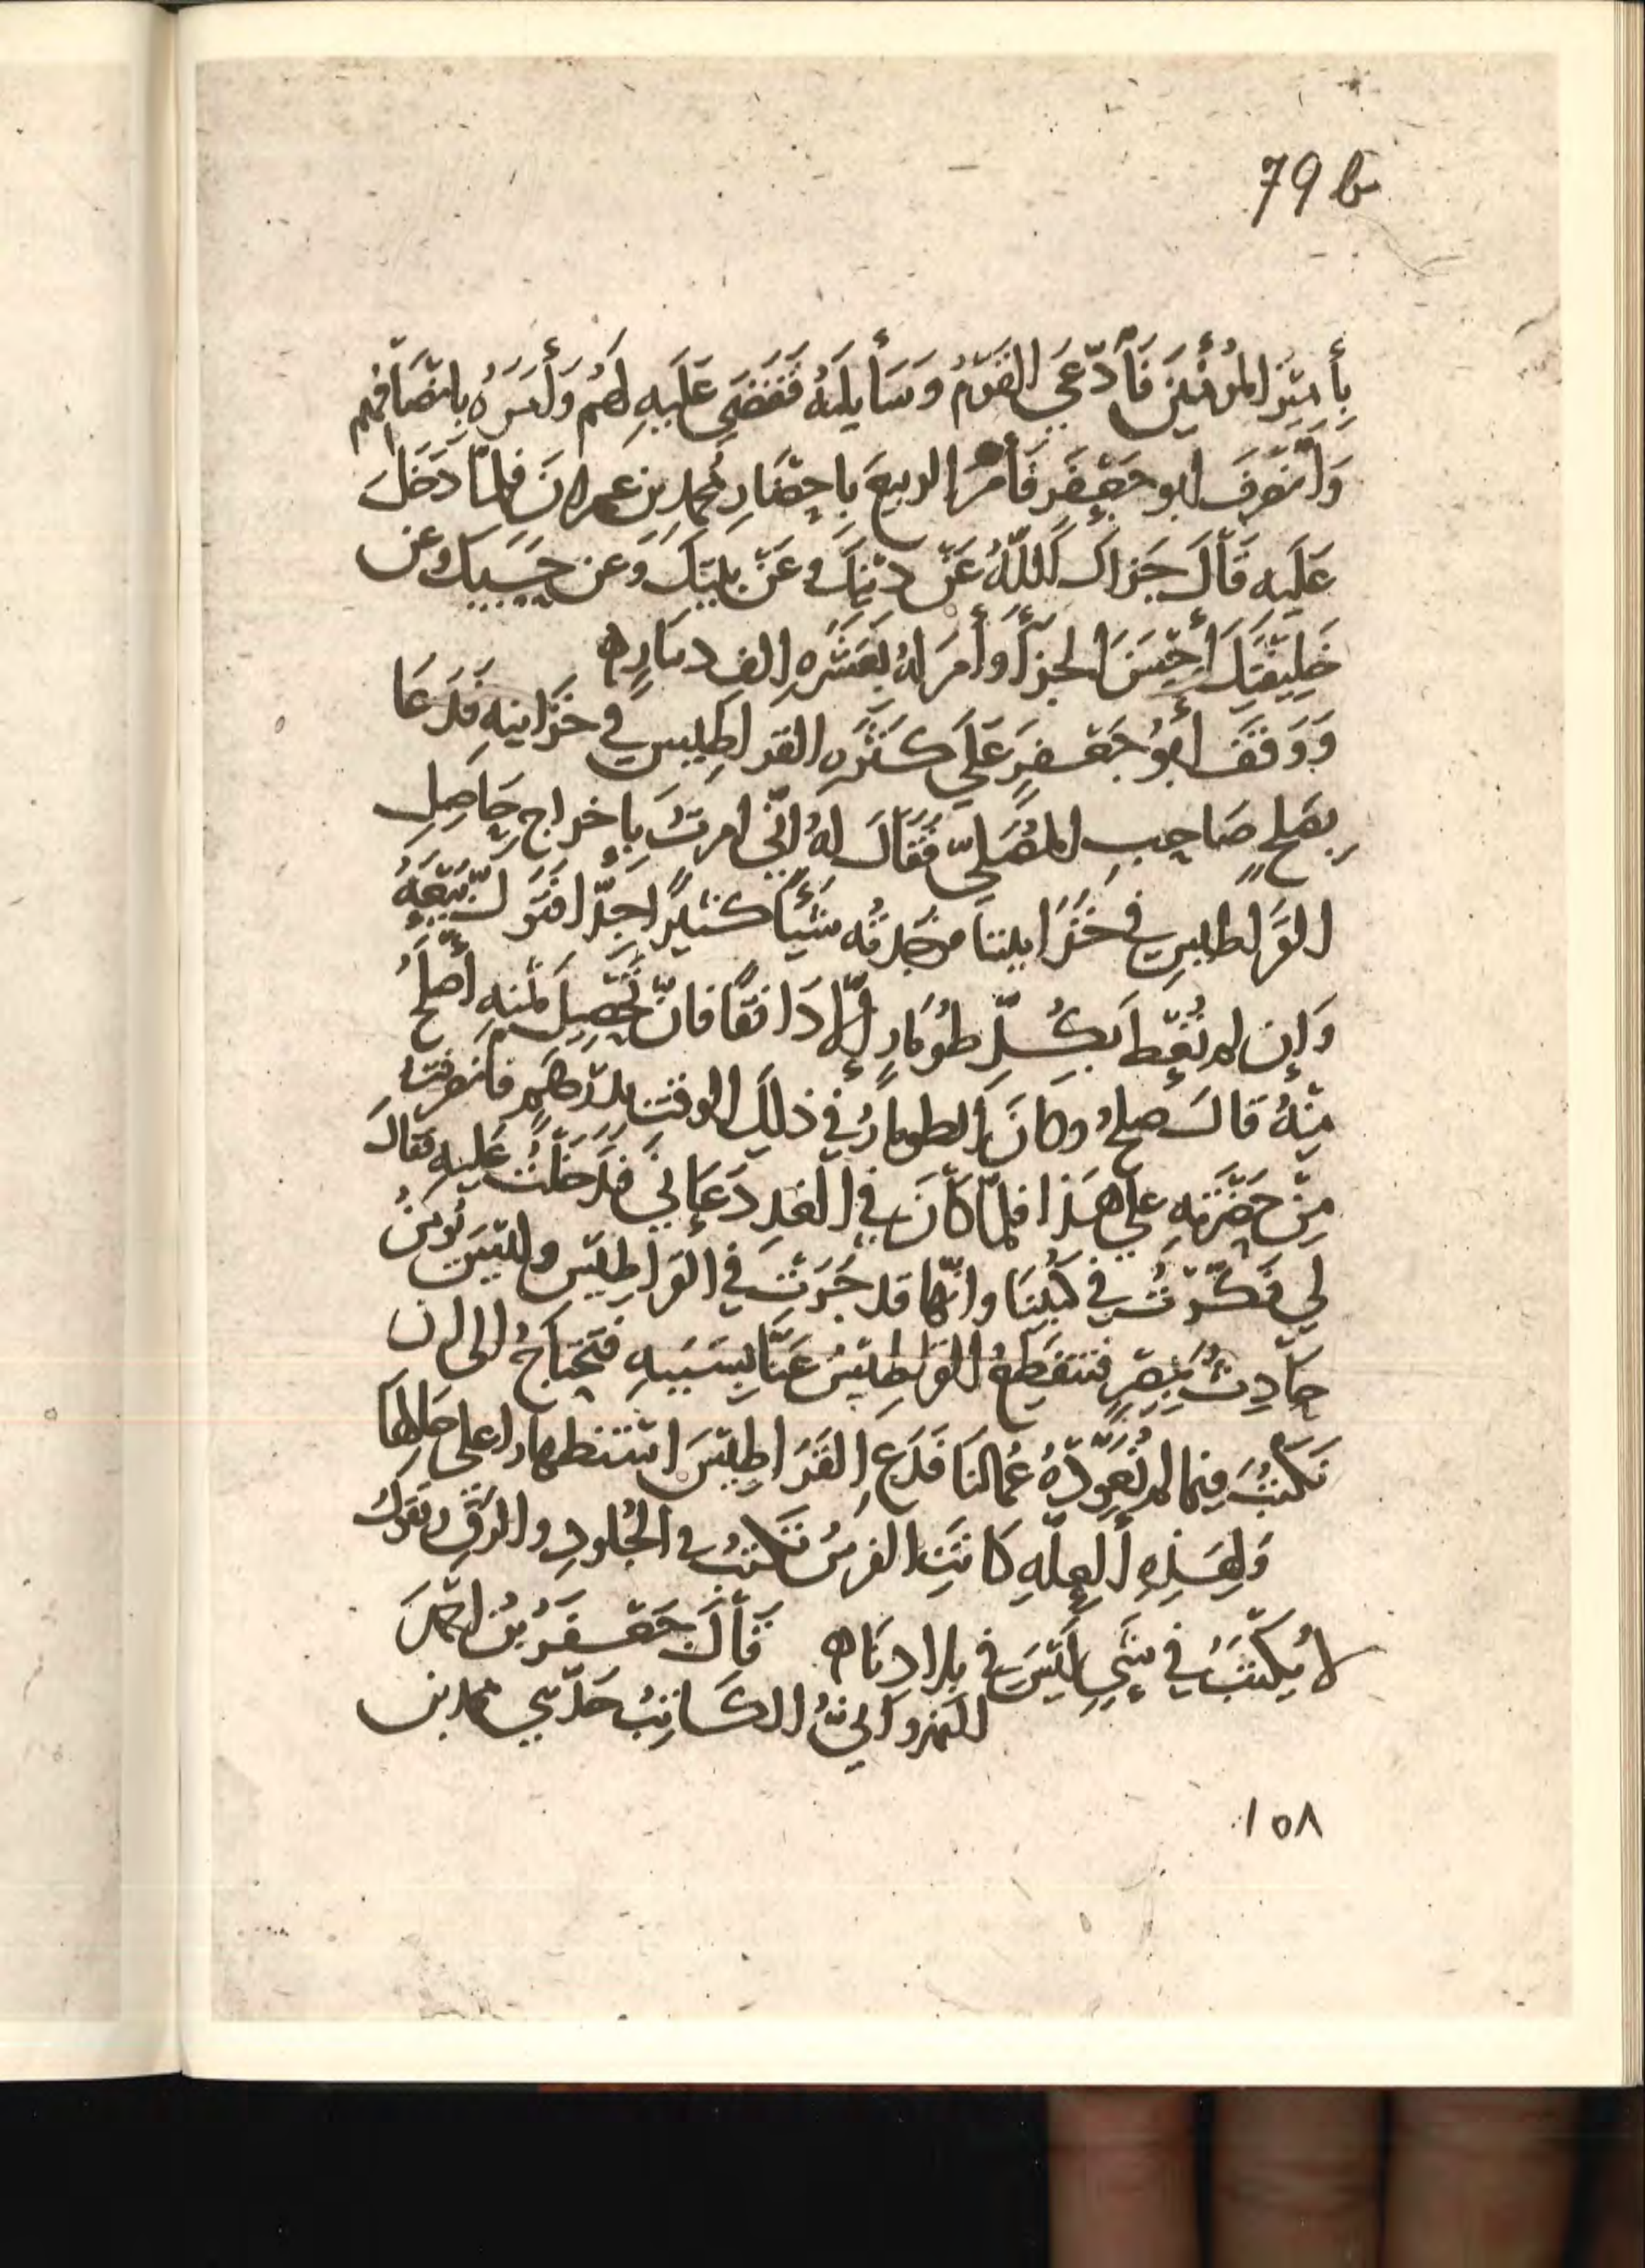 79 b
بأمير المؤمنين فأدّعي القوم وسأيلهُ فقضي عليه لهم وأمره بانصافهم
وانصرف ابو جعفر فأمر الربيع باحضار محمد بن عمران فلمّا دخل
عليه قال جزاك الله عن دينك وعن نبيك وعن حسبك وعن
خليفتك أحسن الجزآ وأمر له بعشره الف دينار ه
ووقف أبو جعفر علي كثره القراطيس في خزاينه فدعا
بصلح صاحب المصلّي فقال له انّي امرت باخراج حاصل
القراطيس في خزايننا فوجدته شيأ كثيرًا جدّا فتولّ بيعه
وإن لم تُعط بكلّ طومار إلّا دانقًا فانّ تحصيل ثمنه أصلح
منه قال صلح وكان الطومار في ذلك الوقت بدرهم فانصرفت
من حضرته علي هذا فلمّا كان في الغد دعاني فدخلت عليه فقال
لي فكّرت في كتبنا وانّها قد جرت في القراطيس وليس يُومنُ
حادث بمصر فتنقطع القراطيس عنّا بسببه فنحتاج الى ان
نكتب فيما لم نعوّده عمالنا فدع القراطيس استظهارا على حالها
ولهذه العلّه كانت الفرس تكتب في الجلود والرق وتقول
لا يكتب في شي ليس في بلادنا ه قال جعفر بن احمد
المروانيّ الكاتب حدّثني محمد بن
١٥٨